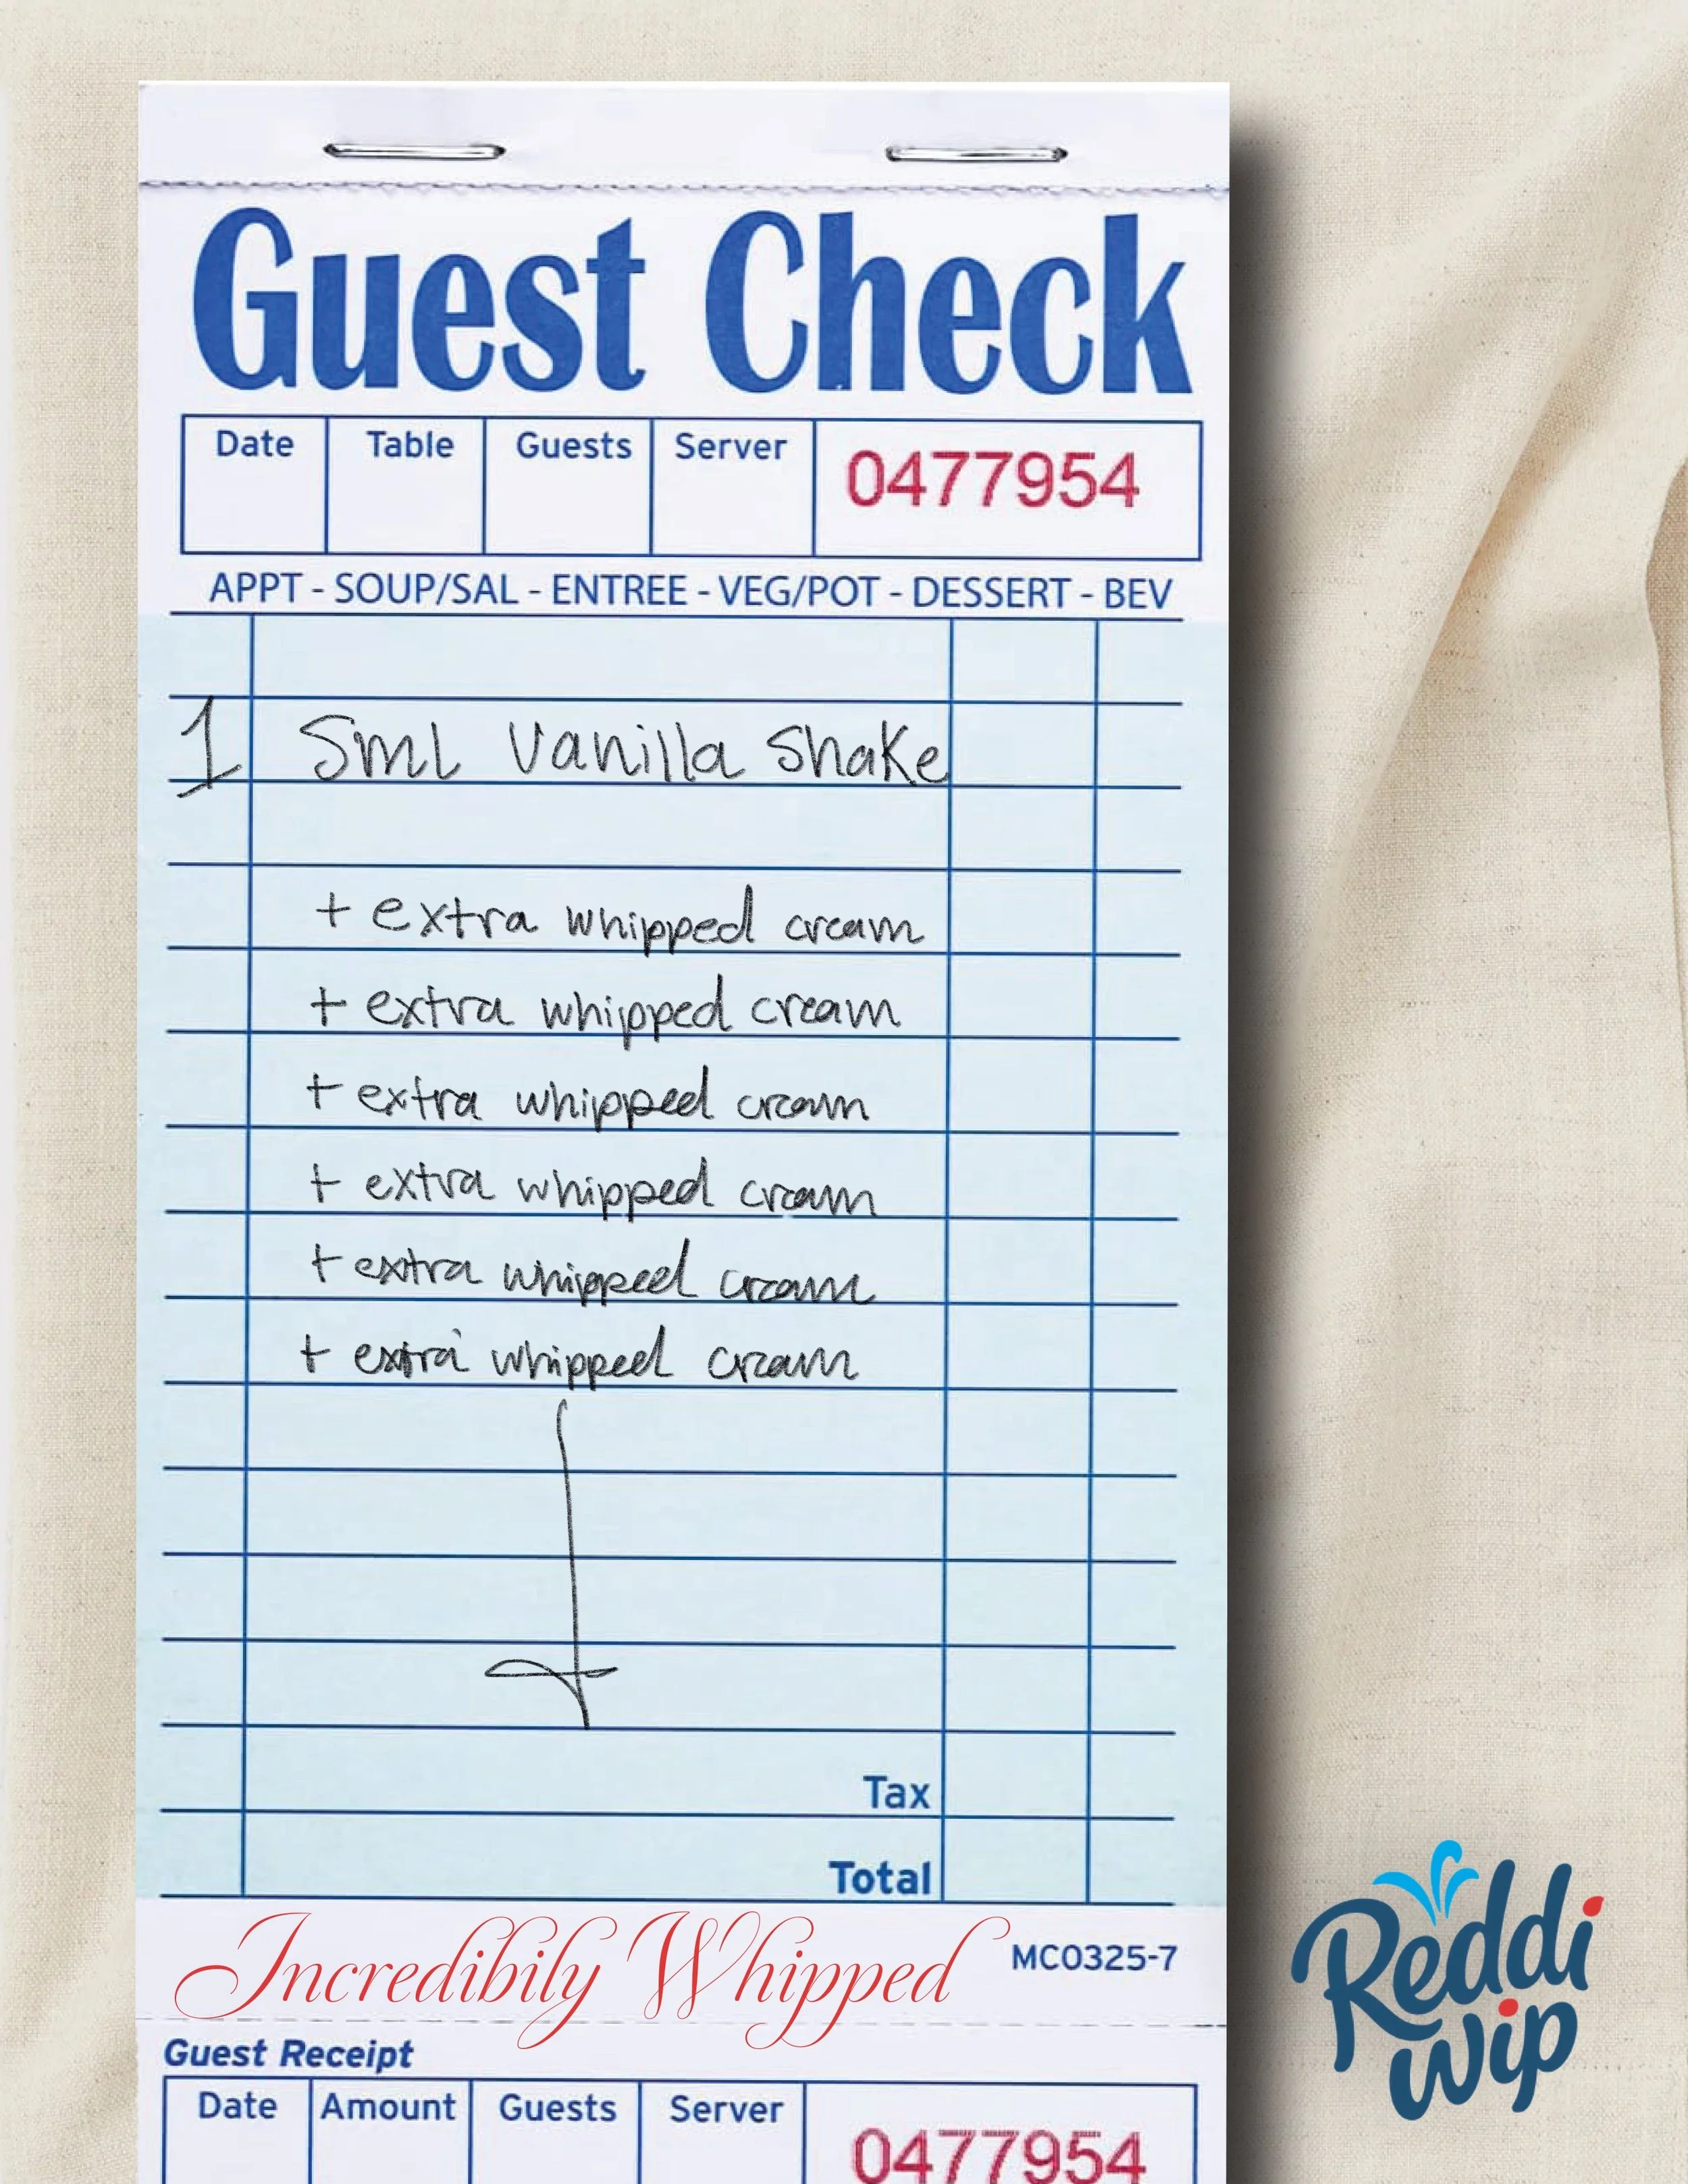 Guest Check
Date Table Guests Server 0477954
APPT - SOUP/SAL - ENTREE - VEG/POT - DESSERT - BEV
1 Sml Vanilla Shake
+ extra whipped cream
+ extra whipped cream
+ extra whipped cream
+ extra whipped cream
+ extra whipped cream
+ extra whipped cream
Tax
Total
Incredibily Whipped MC0325-7
Reddi
wip
Guest Receipt
Date Amount Guests Server 0477954